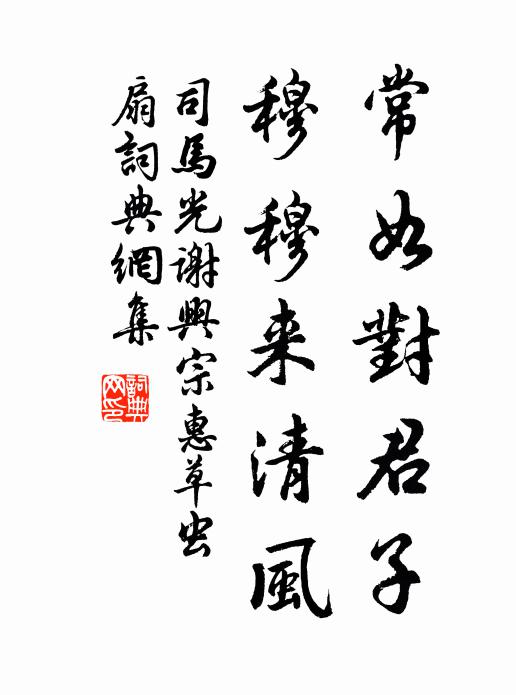 常如對君子
穆穆来清風
司馬光謝興宗惠草虫
扇詞典網集
詞典
网印